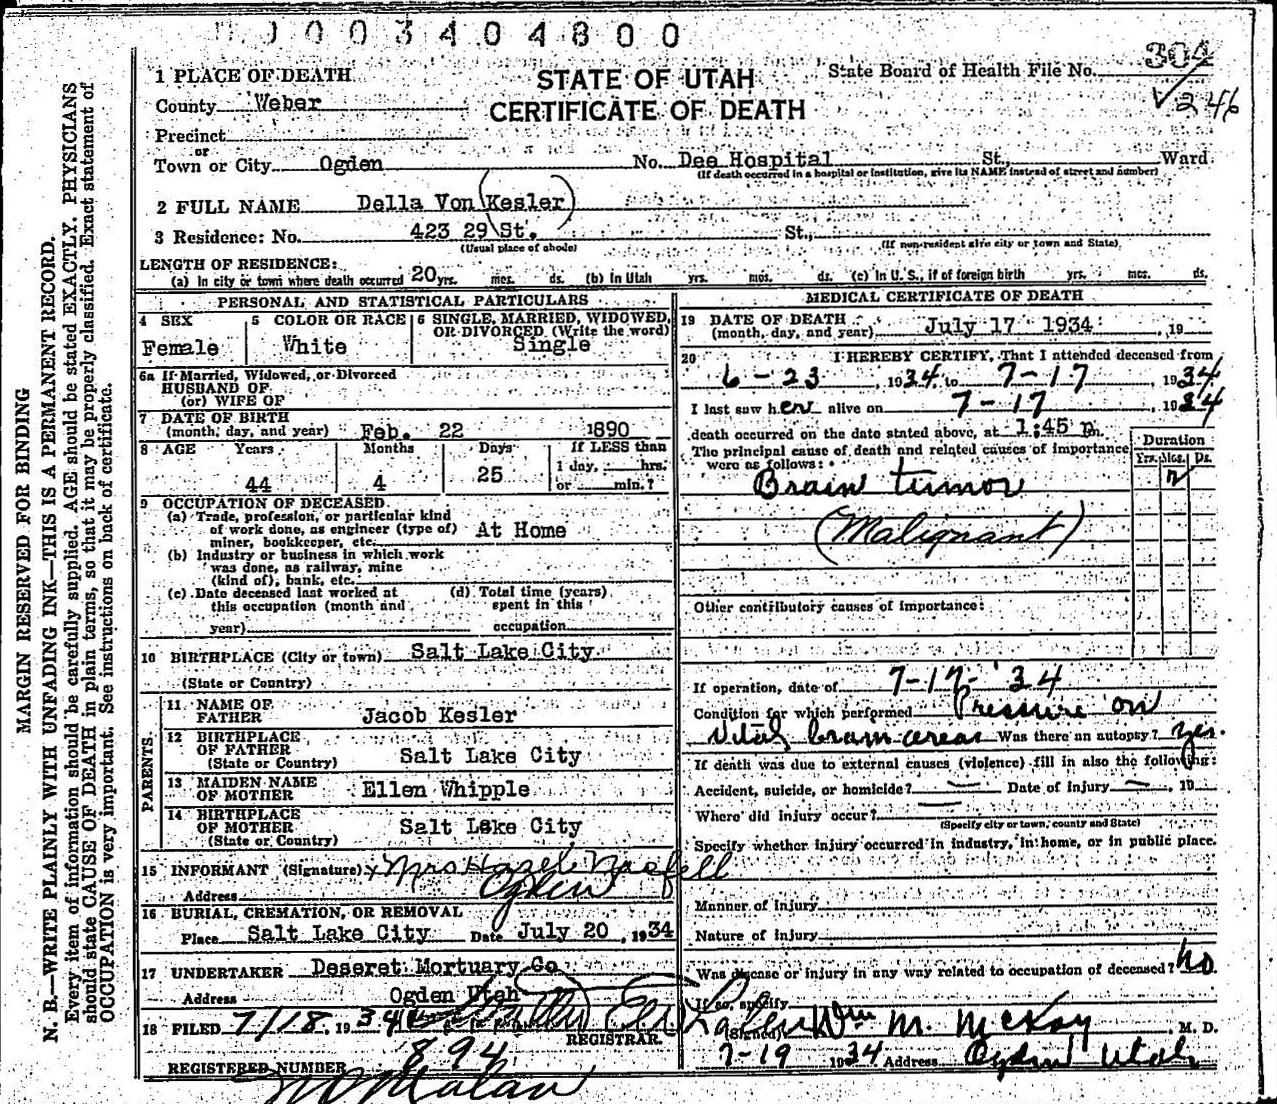 0003404800
304
246
STATE OF UTAH
CERTIFICATE OF DEATH
State Board of Health File No.
1 PLACE OF DEATH
County Weber
Precinct
or
Town or City Ogden No. Dee Hospital St., Ward
(If death occurred in a hospital or institution, give its NAME instead of street and number)
2 FULL NAME Della Von (Kesler)
3 Residence: No. 423 29 St. St.,
(Usual place of abode) (If non-resident give city or town and State)
LENGTH OF RESIDENCE:
(a) In city or town where death occurred 20 yrs. mos. ds. (b) In Utah yrs. mos. ds. (c) In U.S., if of foreign birth yrs. mos. ds.
PERSONAL AND STATISTICAL PARTICULARS
4 SEX
Female
5 COLOR OR RACE
White
6 SINGLE, MARRIED, WIDOWED,
OR DIVORCED (Write the word)
Single
6a If Married, Widowed, or Divorced
HUSBAND OF
(or) WIFE OF
7 DATE OF BIRTH
(month, day, and year) Feb. 22 1890
8 AGE Years Months Days If LESS than
1 day, hrs.
or min.?
44 4 25
9 OCCUPATION OF DECEASED
(a) Trade, profession, or particular kind
of work done, as engineer (type of)
miner, bookkeeper, etc. At Home
(b) Industry or business in which work
was done, as railway, mine
(kind of), bank, etc.
(c) Date deceased last worked at
this occupation (month and
year)
(d) Total time (years)
spent in this
occupation
10 BIRTHPLACE (City or town) Salt Lake City
(State or Country)
PARENTS
11 NAME OF
FATHER Jacob Kesler
12 BIRTHPLACE
OF FATHER Salt Lake City
(State or Country)
13 MAIDEN NAME
OF MOTHER Ellen Whipple
14 BIRTHPLACE
OF MOTHER Salt Lake City
(State or Country)
15 INFORMANT (Signature) x Mrs Hazel
Address Ogden
16 BURIAL, CREMATION, OR REMOVAL
Place Salt Lake City Date July 20, 1934
17 UNDERTAKER Deseret Mortuary Co
Address Ogden Utah
18 FILED 7/18, 1934
REGISTRAR.
REGISTERED NUMBER 894
MEDICAL CERTIFICATE OF DEATH
19 DATE OF DEATH
(month, day, and year) July 17 1934, 19
20 I HEREBY CERTIFY, That I attended deceased from
6-23, 1934 to 7-17, 1934
I last saw her alive on 7-17, 1934
death occurred on the date stated above, at 1:45 p m.
The principal cause of death and related causes of importance
were as follows:
Duration
Yrs. Mos. Ds.
Brain tumor
(Malignant)
Other contributory causes of importance:
If operation, date of 7-17-'34
Condition for which performed Pressure on
Vital brain areas Was there an autopsy? Yes.
If death was due to external causes (violence) fill in also the following:
Accident, suicide, or homicide? — Date of injury —, 19
Where did injury occur? —
(Specify city or town, county and State)
Specify whether injury occurred in industry, in home, or in public place.
Manner of injury
Nature of injury
Was disease or injury in any way related to occupation of deceased? No
If so, specify
(Signed) Wm M. McKay, M. D.
7-19 1934 Address Ogden Utah
MARGIN RESERVED FOR BINDING
N. B.—WRITE PLAINLY WITH UNFADING INK—THIS IS A PERMANENT RECORD.
Every item of information should be carefully supplied. AGE should be stated EXACTLY. PHYSICIANS
should state CAUSE OF DEATH in plain terms, so that it may be properly classified. Exact statement of
OCCUPATION is very important. See instructions on back of certificate.